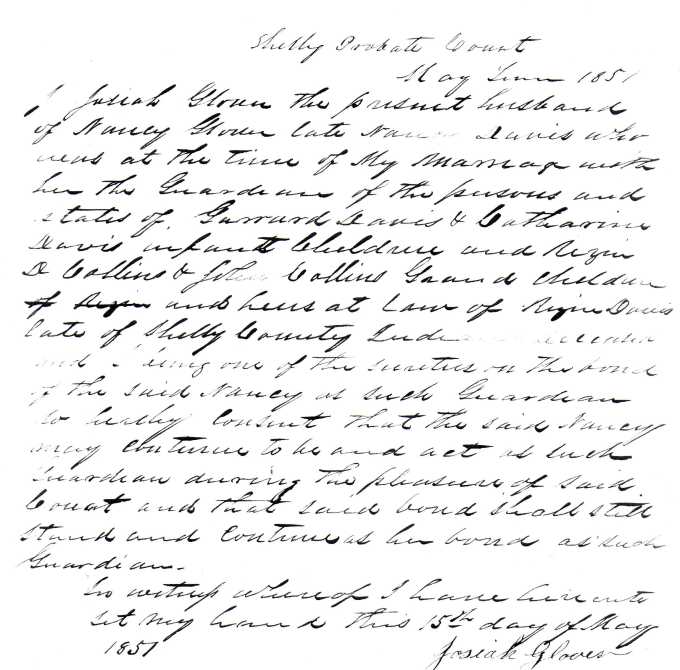 Shelby Probate Court
May Term 1851
I Josiah Glover the present husband
of Nancy Glover late Nancy Davis who
was at the time of My Marriage with
her the Guardian of the persons and
estates of Garrard Davis & Catharine
Davis infant Children and Rezin
D Collins & John Collins Grand Children
of Rezin and heirs at Law of Rezin Davis
late of Shelby County deceased
and I being one of the sureties on the bond
of the said Nancy as such Guardian
do hereby Consent that the said Nancy
may continue to be and act as such
Guardian during the pleasure of said
Court and that said bond shall still
stand and Continue as her bond as such
Guardian.
In witness whereof I have here unto
set my hand this 15th day of May
1851 Josiah Glover